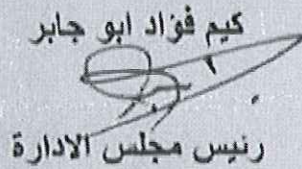 كيم فؤاد ابو جابر
رئيس مجلس الادارة